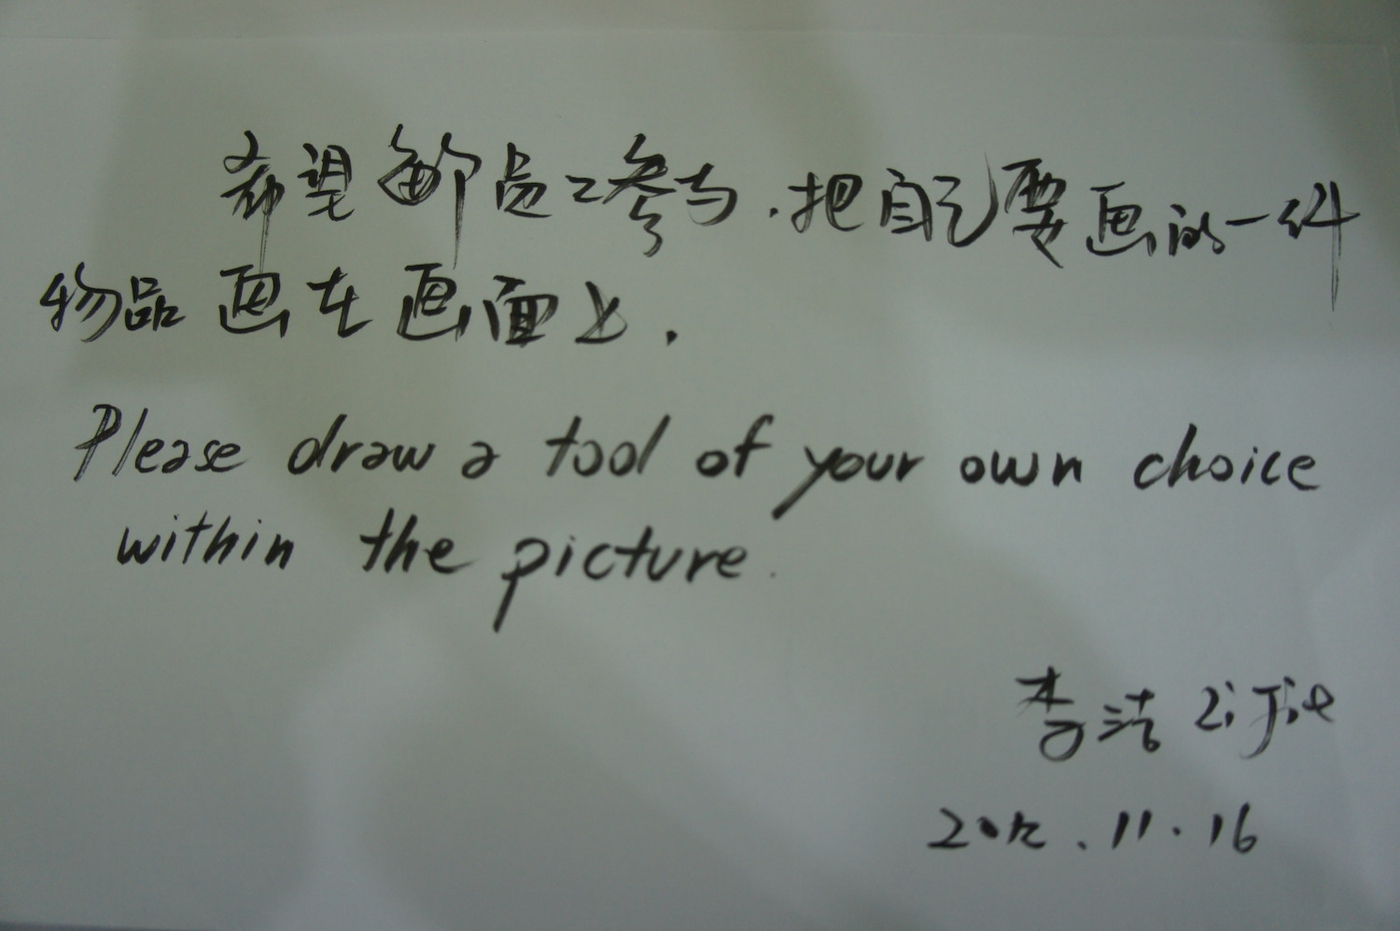 希望邮员工参与.把自己要画的一件
物品画在画面上.
Please draw a tool of your own choice
within the picture.
李洁 Li Jie
2012.11.16